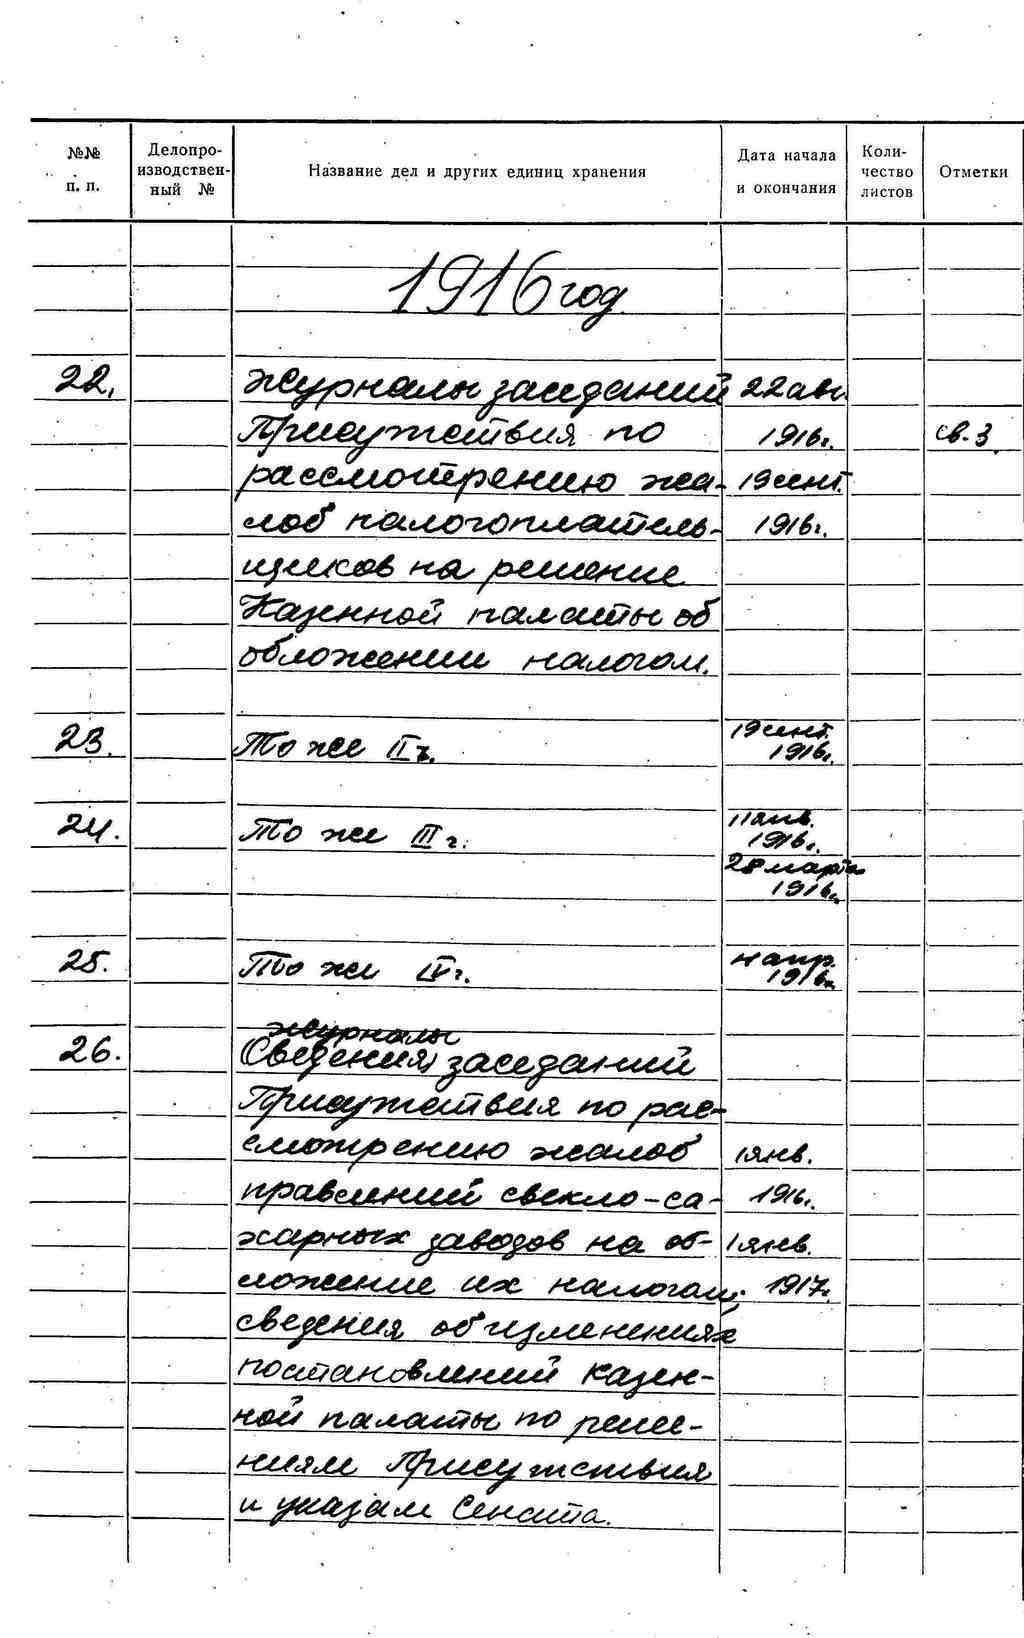 №№ п. п.
Делопро-
изводствен-
ный №
Название дел и других единиц хранения
Дата начала
и окончания
Коли-
чество
листов
Отметки
1916 год
22. Журналы заседаний 22 авг.
Присутствия по 1916г. св. 3
рассмотрению жа- 19 сент.
лоб налогоплатель- 1916г.
щиков на решение
Казенной палаты об
обложении налогом.
23. То же II г. 19 сент.
1916г.
24. То же III г. 11 янв.
1916г.
28 марта
1916г.
25. То же IV г. апр.
1916г.
журналы
26. Сведения заседаний
Присутствия по рас-
смотрению жалоб 1 янв.
правлений свекло-са- 1916г.
харных заводов на об- 1 янв.
ложение их налогом; 1917г.
сведения об изменениях
постановлений казен-
ной палаты по реше-
ниям Присутствия
и указам Сената.